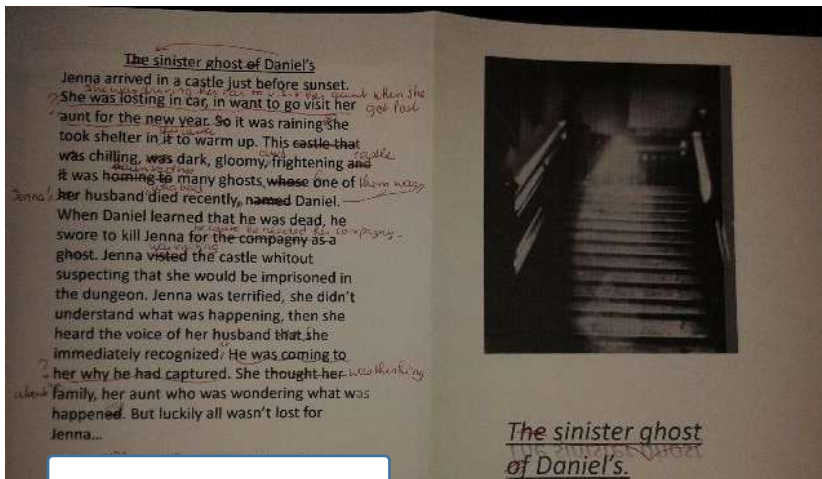 The sinister ghost of Daniel's
Jenna arrived in a castle just before sunset.
She was driving her car to visit her aunt when she
She was losting in car, in want to go visit her got lost
aunt for the new year. So it was raining she
the castle
took shelter in it to warm up. This castle that
was chilling, was dark, gloomy, frightening and castle
it was homing to many ghosts, whose one of them was
who had
Jenna's her husband died recently, named Daniel.
When Daniel learned that he was dead, he
swore to kill Jenna for the compagny as a
ghost. Jenna visted the castle whitout
suspecting that she would be imprisoned in
the dungeon. Jenna was terrified, she didn't
understand what was happening, then she
heard the voice of her husband that she
immediately recognized. He was coming to
? her why he had captured. She thought her was thinking
about family, her aunt who was wondering what was
happened. But luckily all wasn't lost for
Jenna...
The sinister ghost
of Daniel's.